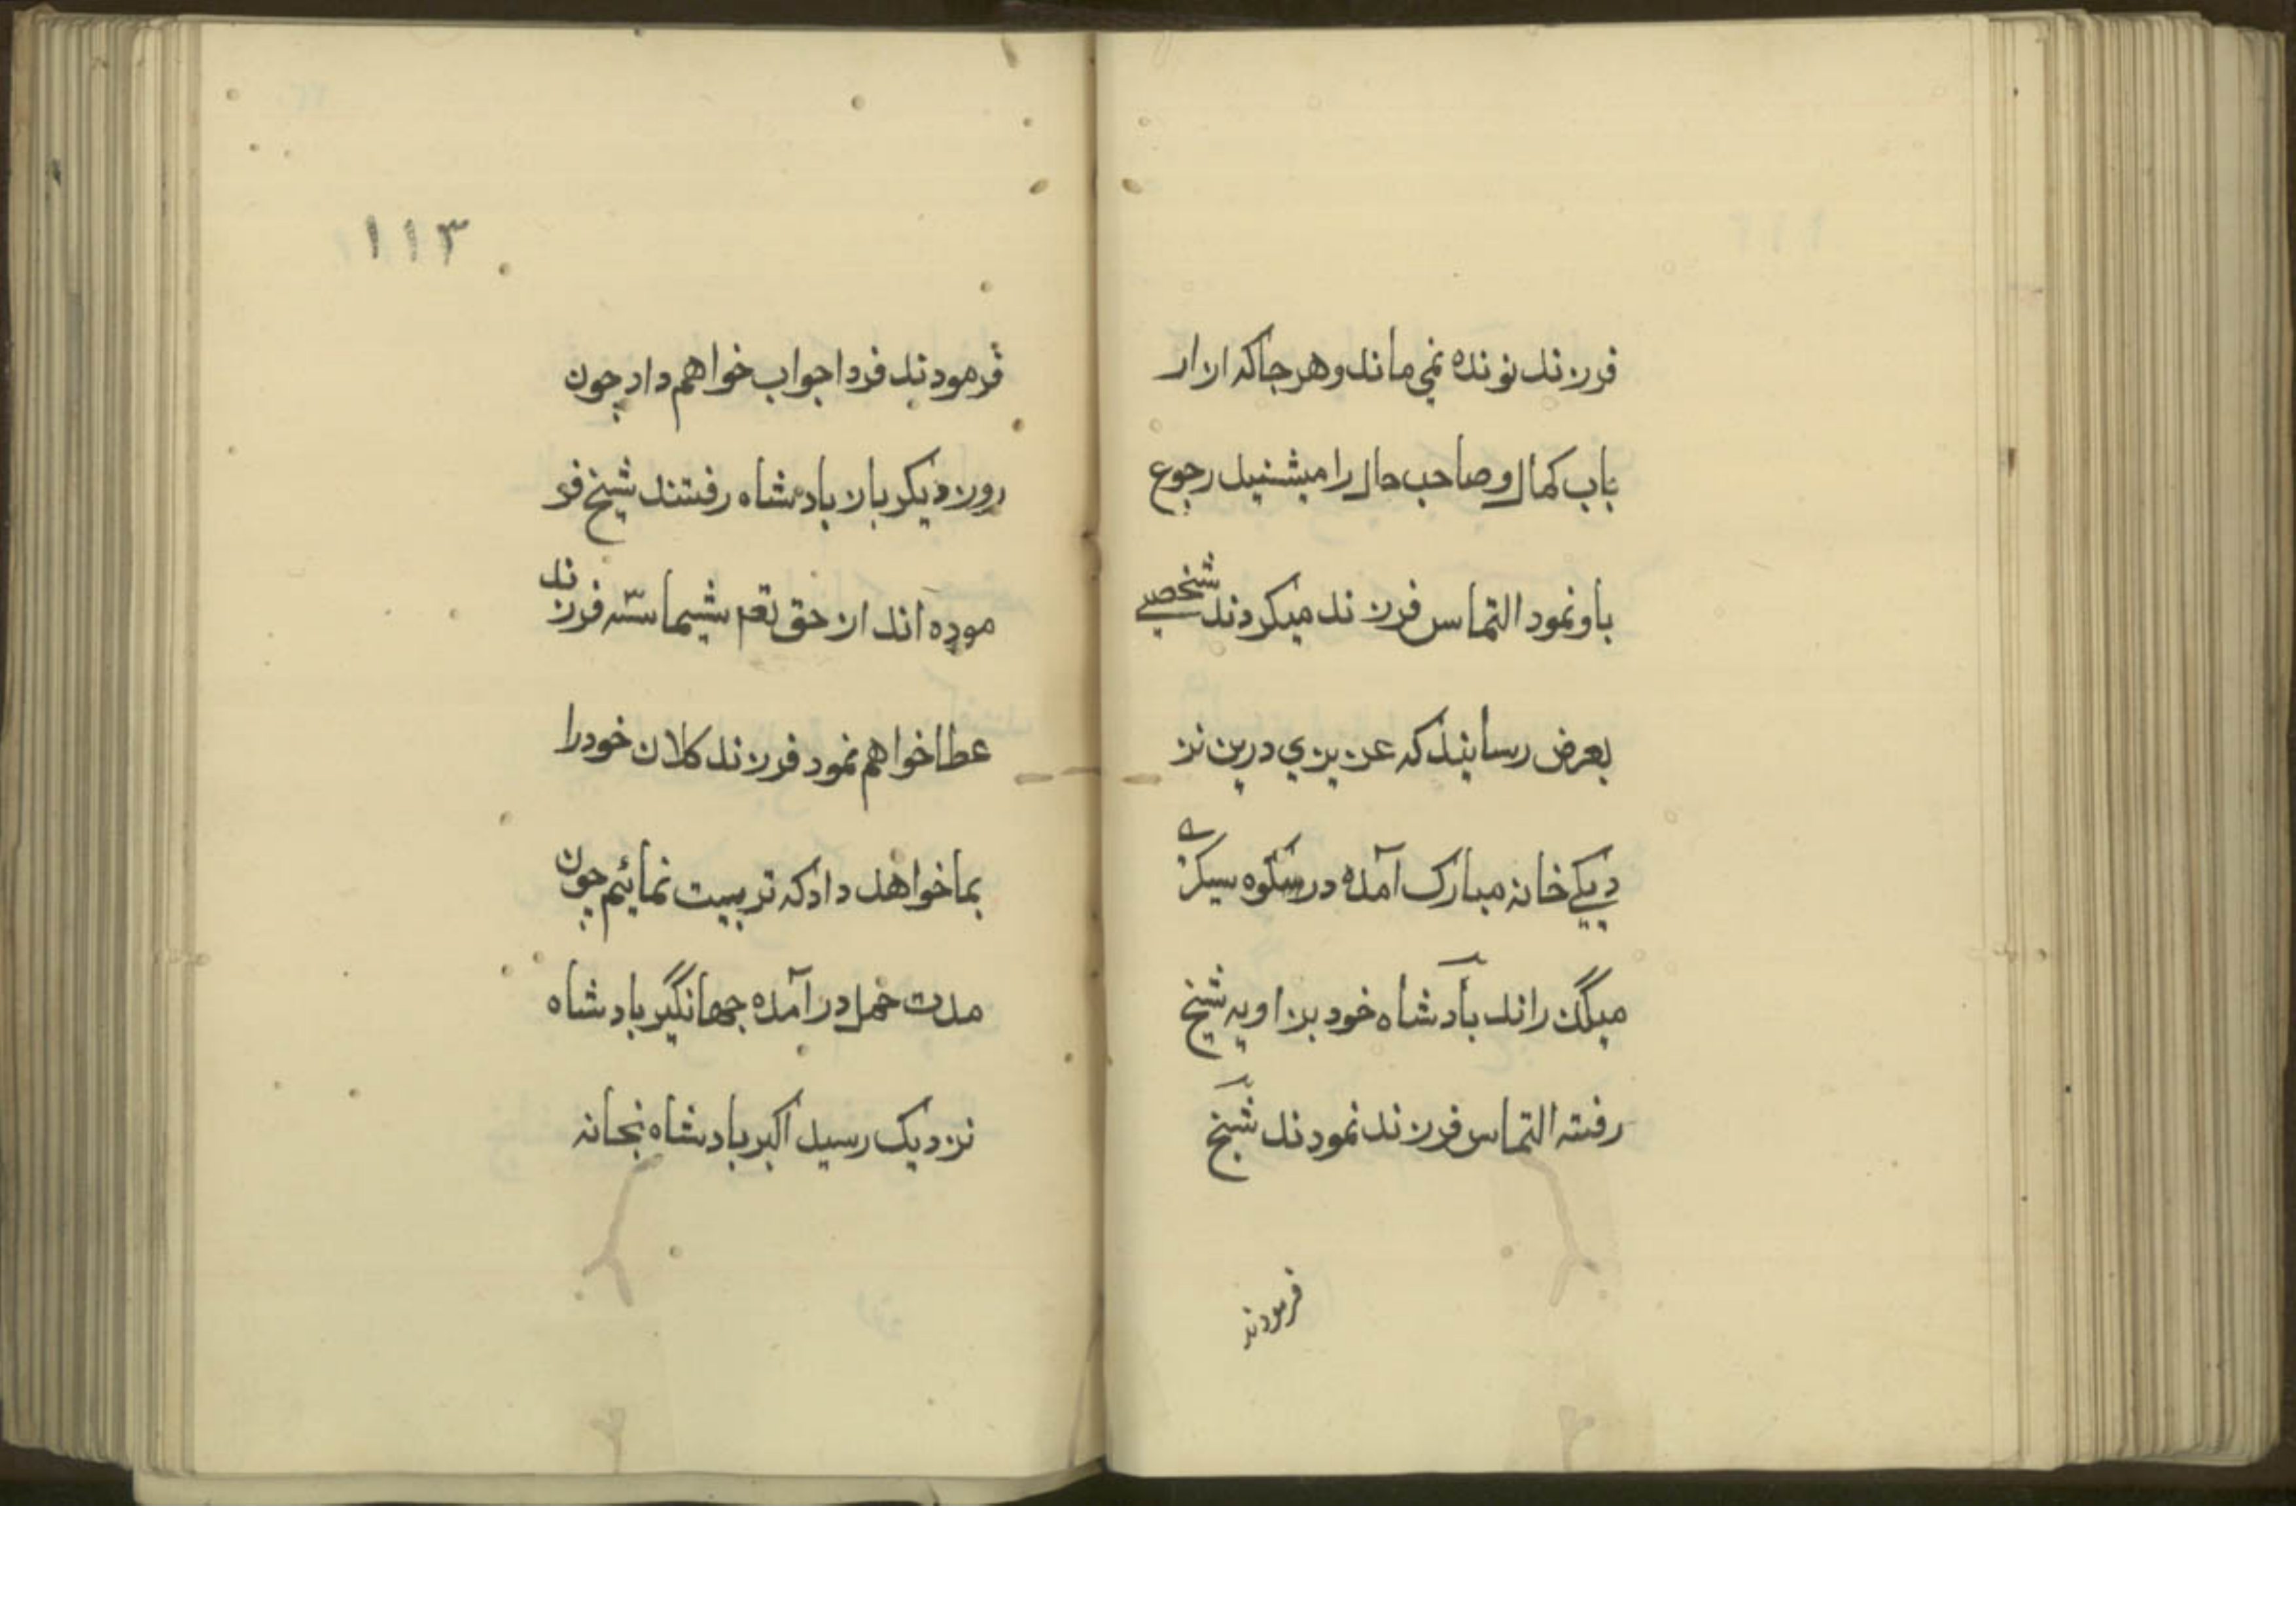 فرزند نونده نمي ماند و هر جا که از ار
باب کمال و صاحب حال را میشنید رجوع
باو نمود التماس فرزند میکردند شخصے
بعرض رسانید که عزیزي درین نز
دیکے خانه مبارک آمده در سکوه سیکرے
میگذرانند بادشاه خود بزاویه شیخ
رفته التماس فرزند نمودند شیخ
فرمودند
۱۱۳
فرمودند فردا جواب خواهم داد چون
روز دیکر باز بادشاه رفتند شیخ فر
موده اند از حق تعم شیما سه فرزند
عطا خواهم نمود فرزند کلان خود را
بما خواهد داد که تربیت نمائیم چون
مدت حمل در آمده جهانگیر بادشاه
نزدیک رسید اکبر بادشاه بخانه